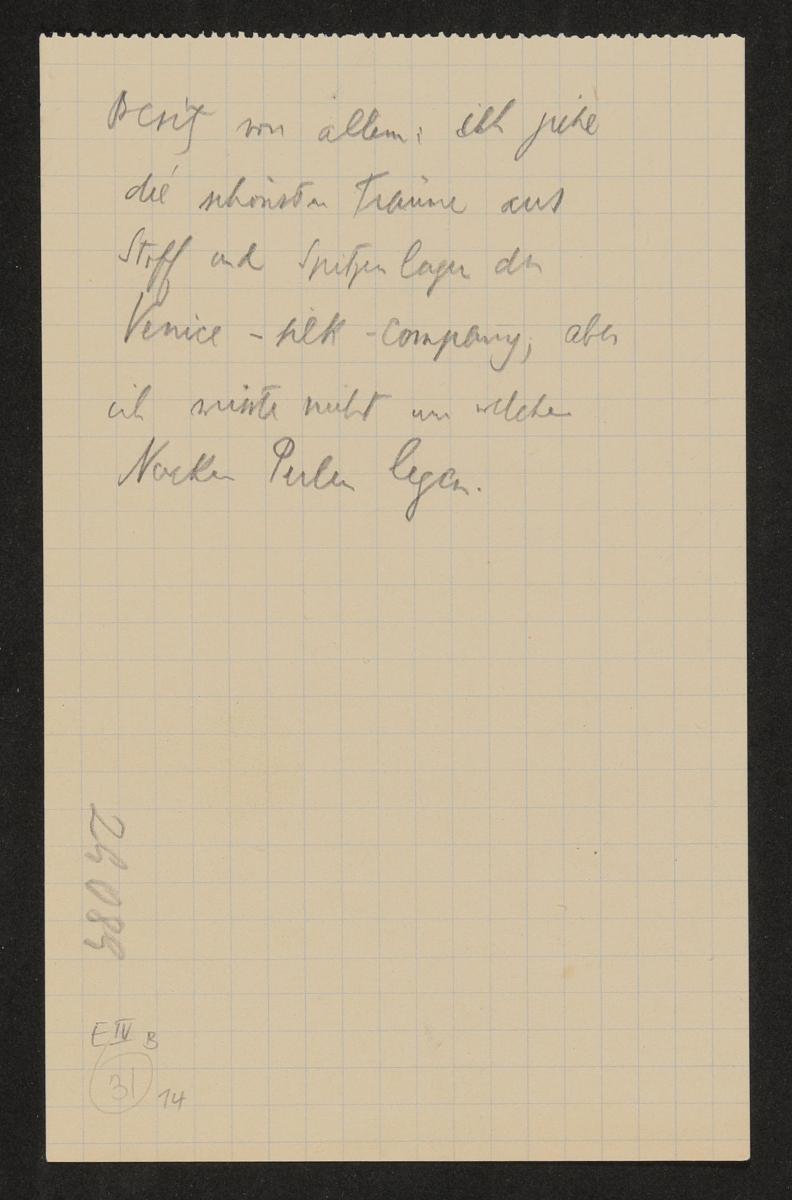 Besitz von allem: ich ziehe
die schönsten Träume aus
Stoff und Spitzenlager der
Venice-silk-company, aber
ich wüsste nicht um welchen
Nacken Perlen legen.
24 084
E IV B
31 14